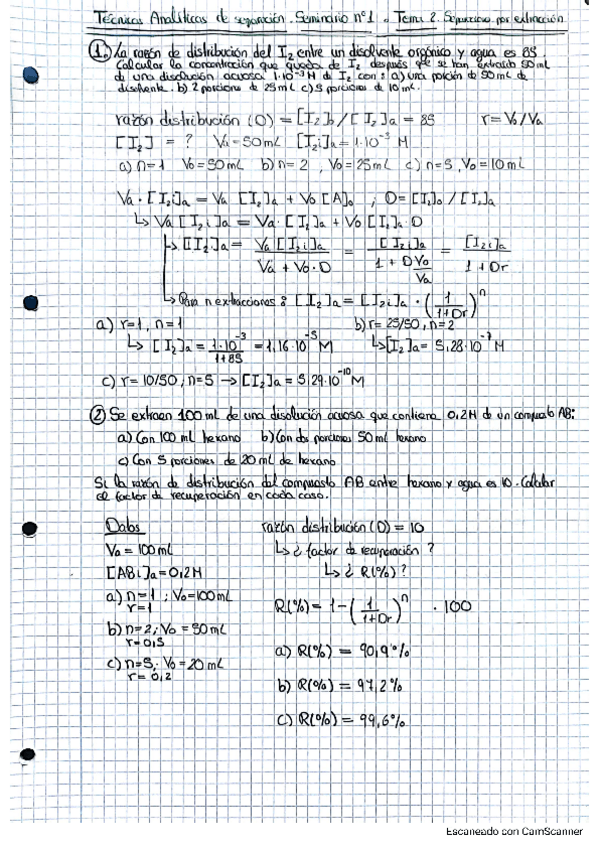 Técnicas Analíticas de separación. Seminario nº1. Tema 2. Separaciones por extracción
1. La razón de distribución del I2 entre un disolvente orgánico y agua es 85.
Calcular la concentración que queda de I2 después que se han extraído 50 mL
de una disolución acuosa 1·10^-3 M de I2 con: a) una porción de 50 mL de
disolvente. b) 2 porciones de 25 mL c) 5 porciones de 10 mL.
razón distribución (D) = [I2]o / [I2]a = 85 r = Vo/Va
[I2] = ? Va = 50mL [I2i]a = 1·10^-3 M
a) n=1 Vo=50mL b) n=2, Vo=25mL c) n=5, Vo=10mL
Va·[I2i]a = Va [I2]a + Vo [A]o ; D = [I2]o / [I2]a
↳ Va [I2i]a = Va·[I2]a + Vo [I2]a·D
↳ [I2]a = Va [I2i]a / (Va + Vo·D) = [I2i]a / (1 + D Vo/Va) = [I2i]a / (1 + Dr)
↳ Para n extracciones: [I2]a = [I2i]a · (1/(1+Dr))^n
a) r=1, n=1 b) r=25/50, n=2
↳ [I2]a = 1·10^-3 / (1+85) = 1,16·10^-5 M ↳ [I2]a = 5,28·10^-7 M
c) r = 10/50 ; n=5 → [I2]a = 5,29·10^-10 M
2. Se extraen 100 mL de una disolución acuosa que contiene 0,2M de un compuesto AB:
a) Con 100 ml hexano b) Con dos porciones 50 ml hexano
c) Con 5 porciones de 20 mL de hexano
Si la razón de distribución del compuesto AB entre hexano y agua es 10. Calcular
el factor de recuperación en cada caso.
Datos razón distribución (D) = 10
Va = 100mL ↳ ¿ factor de recuperación ?
[ABi]a = 0,2M ↳ ¿ R(%) ?
a) n=1 ; Vo=100mL
r=1 R(%) = 1-(1/(1+Dr))^n · 100
b) n=2; Vo = 50mL
r=0,5 a) R(%) = 90,9%
c) n=5; Vo = 20 mL
r= 0,2 b) R(%) = 97,2%
c) R(%) = 99,6%
Escaneado con CamScanner